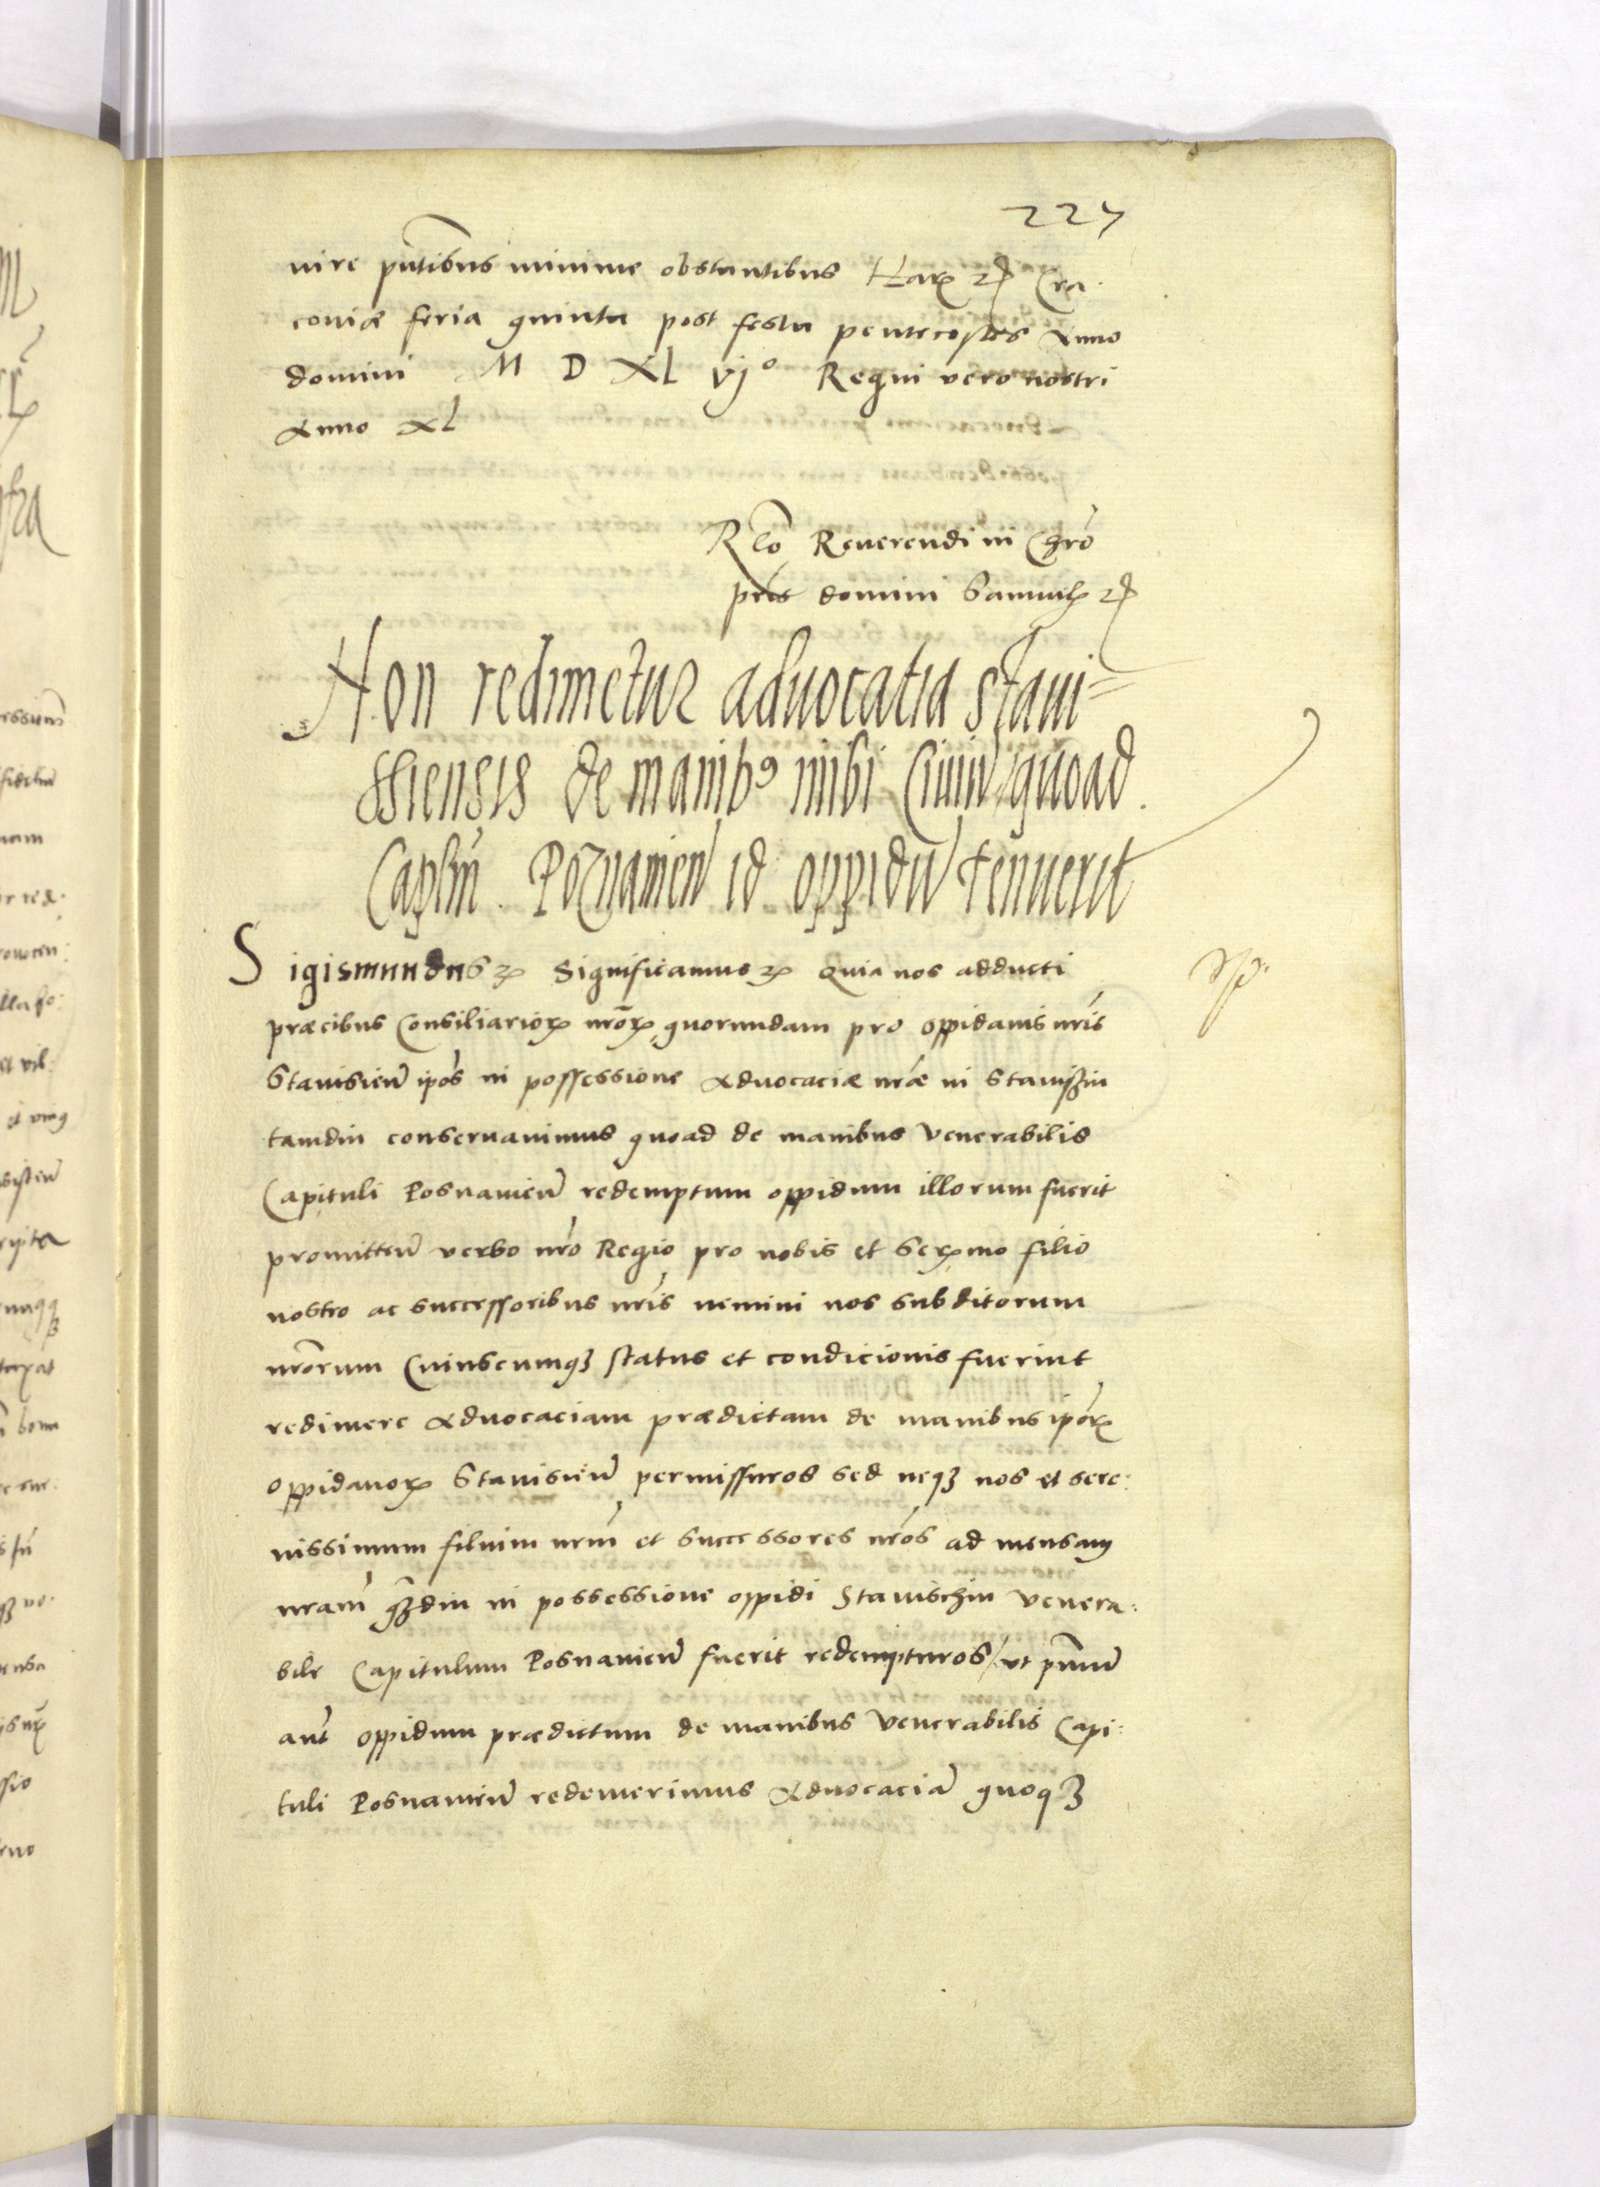 227
nire pntibus minime obstantibus Harz etc Cra.
coviæ feria quinta post festa pentecostes Anno
domini M D XL vjo Regni vero nostri
Anno XL
Rlo Reverendi in Chro
pris domini Samuelis etc
Non redimetur advocatia stavi=
ssiensis de manibus inibi Civiu quoad
Caplm Poznanien id oppidu tenuerit
Sigismundus etc Significamus etc Quia nos adducti
præcibus Consiliariorum nrorum quorundam pro oppidanis nris
Stavisien ipos in possessione Advocaciæ nræ in Stavissin
tamdiu conservavimus quoad de manibus Venerabilis
Capituli Posnanien redemptum oppidum illorum fuerit
promitten verbo nro Regio pro nobis et Sermo filio
nostro ac successoribus nris nemini nos subditorum
nrorum Cuiuscumq status et condicionis fuerint
redimere Advocaciam prædictam de manibus iporum
oppidanorum Stavisien permissuros sed neq nos et sere:
nissimum filium nrum et successores nros ad mensam
nram qzdiu in possessione oppidi Stavischin venera:
bile Capitulum Posnanien fuerit redempturos / ut primum
aut oppidum prædictum de manibus Venerabilis Capi:
tuli Posnanien redemerimus Advocaciã quoq